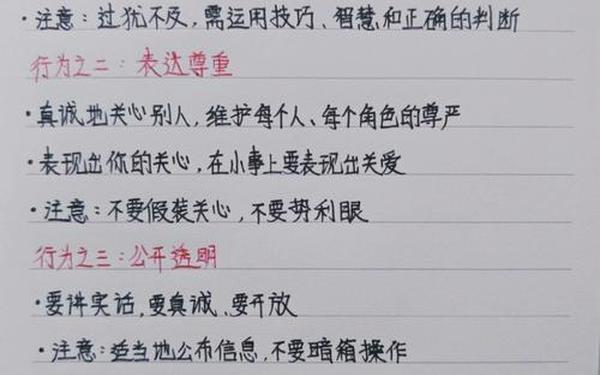 ·注意：过犹不及，需运用技巧、智慧和正确的判断
行为之二：表达尊重
·真诚地关心别人，维护每个人、每个角色的尊严
·表现出你的关心，在小事上要表现出关爱
·注意：不要假装关心，不要势利眼
行为之三：公开透明
·要讲实话，要真诚、要开放
·注意：适当地公布信息，不要暗箱操作